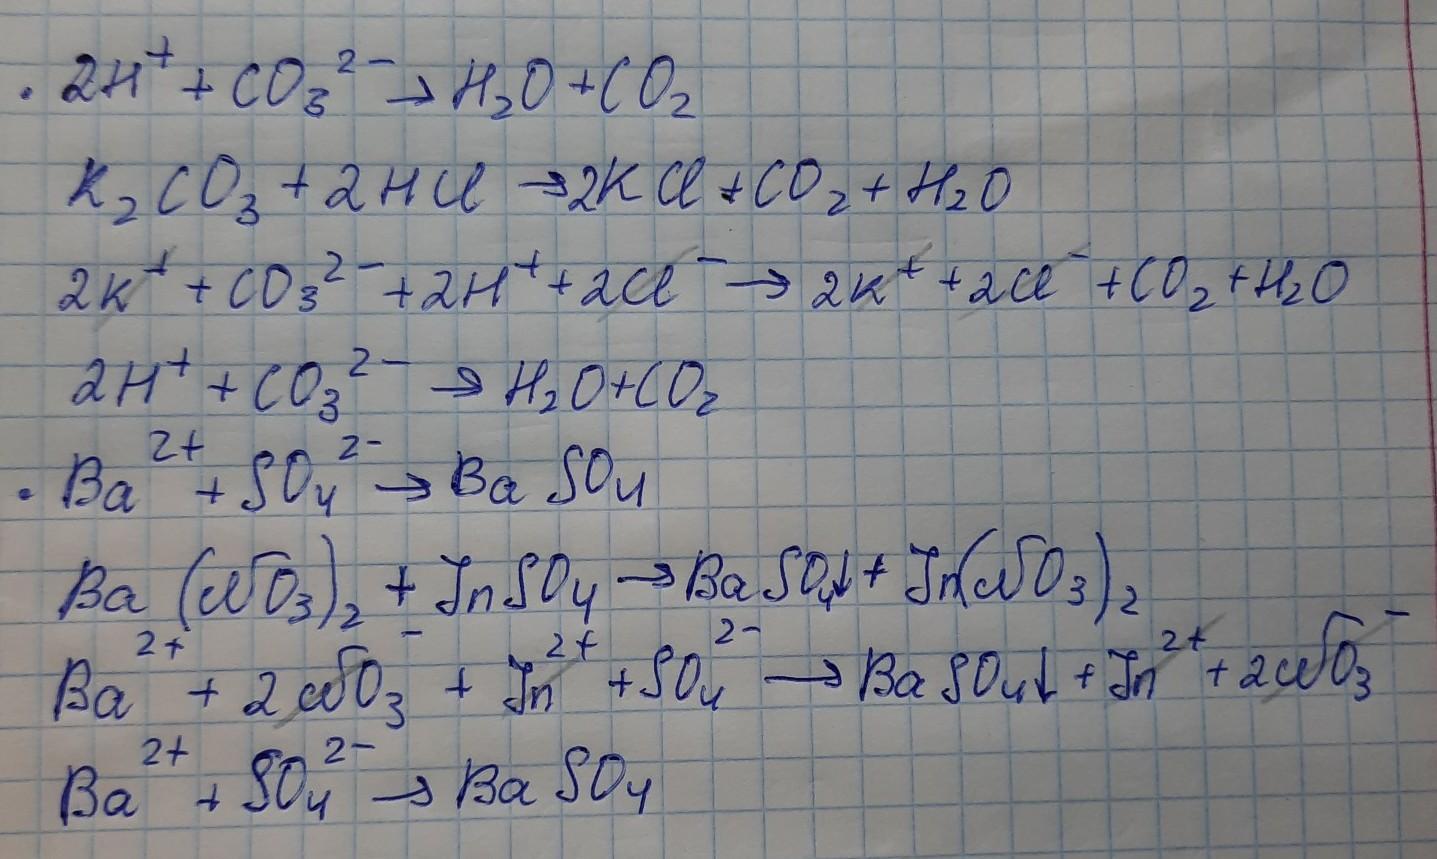 · 2H⁺ + CO₃²⁻ → H₂O + CO₂
K₂CO₃ + 2HCl → 2KCl + CO₂ + H₂O
2K⁺ + CO₃²⁻ + 2H⁺ + 2Cl⁻ → 2K⁺ + 2Cl⁻ + CO₂ + H₂O
2H⁺ + CO₃²⁻ → H₂O + CO₂
· Ba²⁺ + SO₄²⁻ → BaSO₄
Ba(NO₃)₂ + ZnSO₄ → BaSO₄↓ + Zn(NO₃)₂
Ba²⁺ + 2NO₃⁻ + Zn²⁺ + SO₄²⁻ → BaSO₄↓ + Zn²⁺ + 2NO₃⁻
Ba²⁺ + SO₄²⁻ → BaSO₄